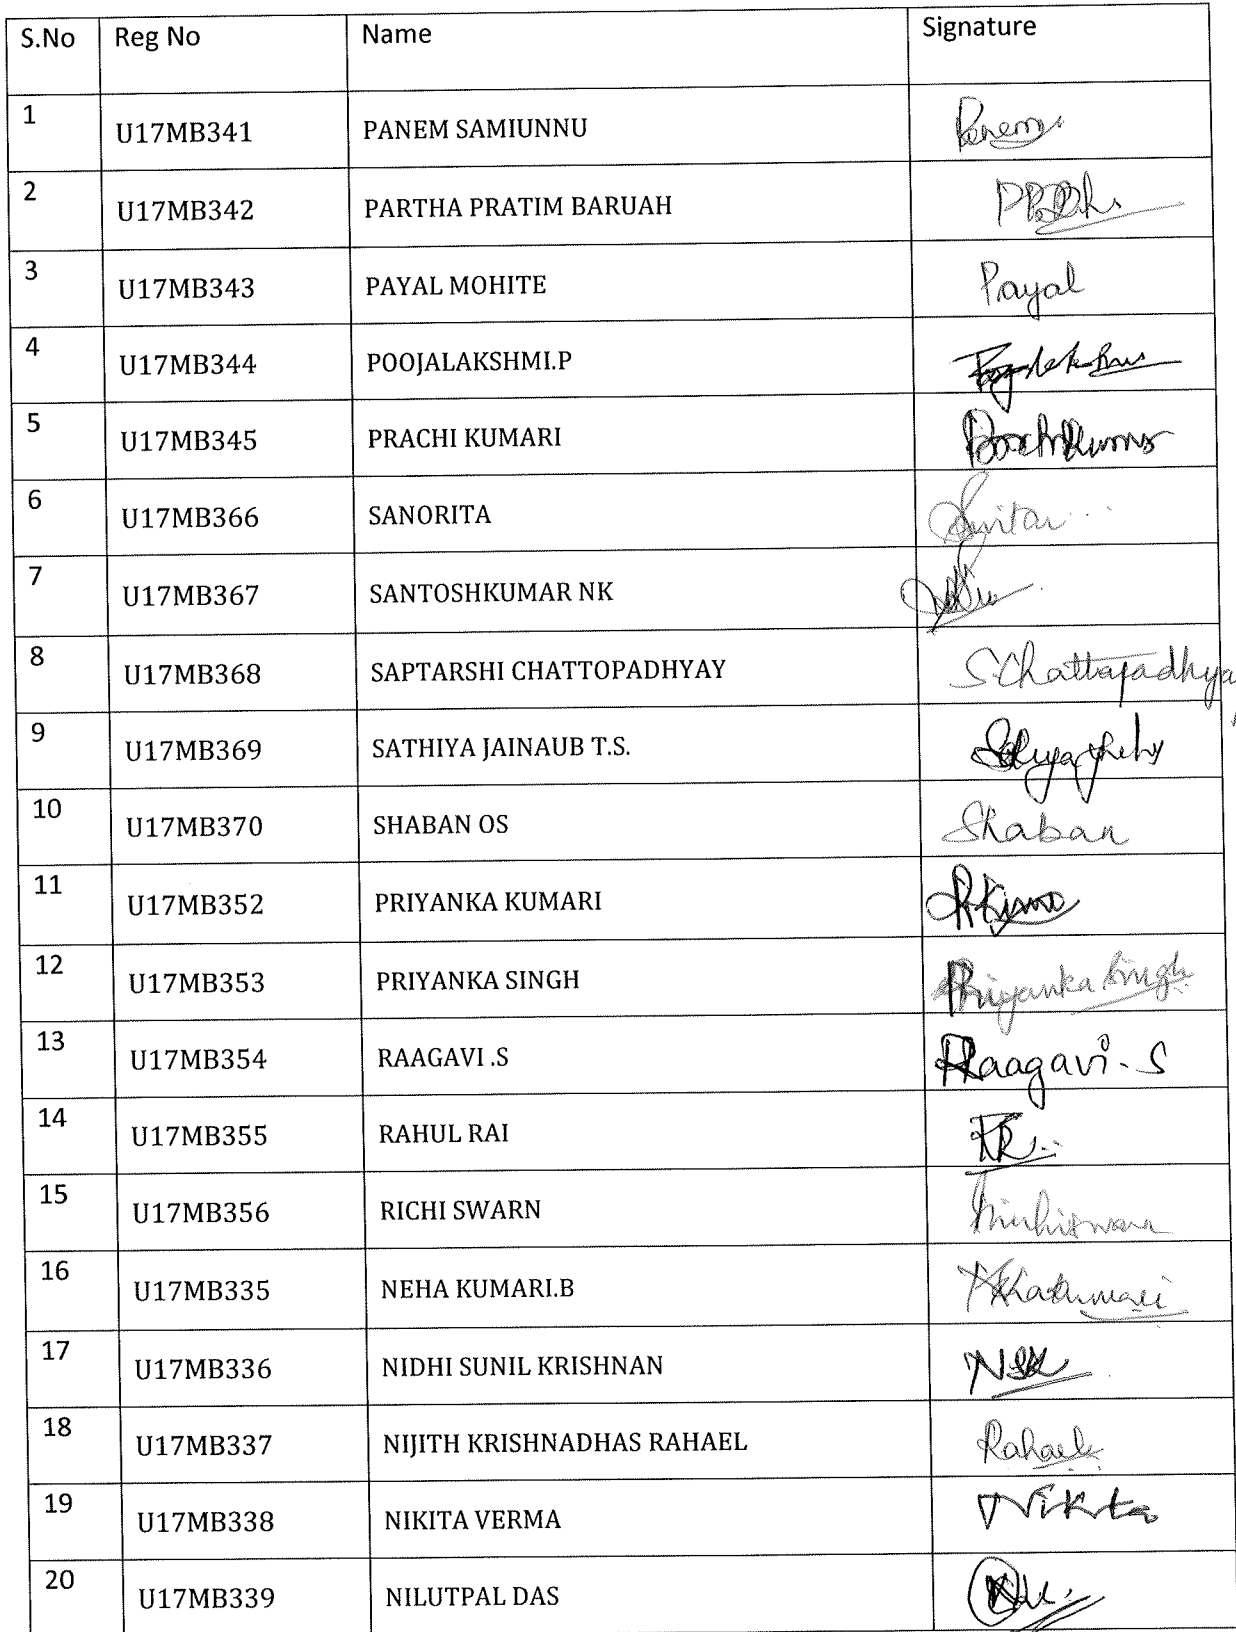 S.No Reg No Name Signature
1 U17MB341 PANEM SAMIUNNU Panem
2 U17MB342 PARTHA PRATIM BARUAH
3 U17MB343 PAYAL MOHITE Payal
4 U17MB344 POOJALAKSHMI.P
5 U17MB345 PRACHI KUMARI
6 U17MB366 SANORITA
7 U17MB367 SANTOSHKUMAR NK
8 U17MB368 SAPTARSHI CHATTOPADHYAY S.Chattopadhya
9 U17MB369 SATHIYA JAINAUB T.S.
10 U17MB370 SHABAN OS Shaban
11 U17MB352 PRIYANKA KUMARI
12 U17MB353 PRIYANKA SINGH Priyanka Singh
13 U17MB354 RAAGAVI .S Raagavi. S
14 U17MB355 RAHUL RAI
15 U17MB356 RICHI SWARN
16 U17MB335 NEHA KUMARI.B
17 U17MB336 NIDHI SUNIL KRISHNAN NSK
18 U17MB337 NIJITH KRISHNADHAS RAHAEL Rahael
19 U17MB338 NIKITA VERMA Nikita
20 U17MB339 NILUTPAL DAS